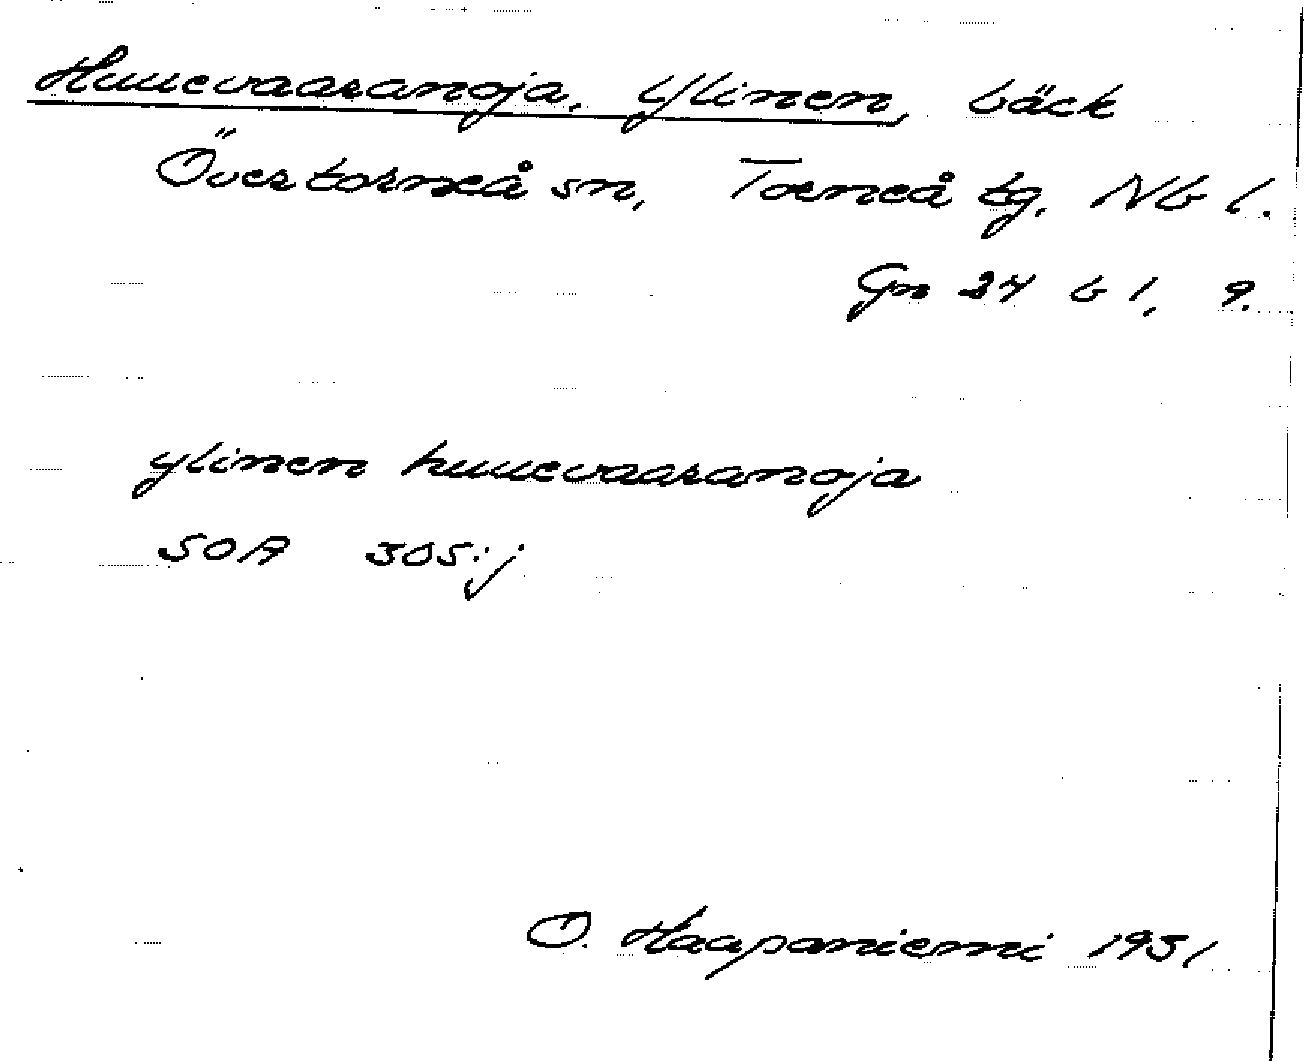 Huuevaaranoja, Ylinen, bäck
Övertorneå sn, Torneå tg, Nb l.
Gn 24 b 1, 9.
ylinen huuevaaranoja
SOA 305:j
O. Haapaniemi 1931